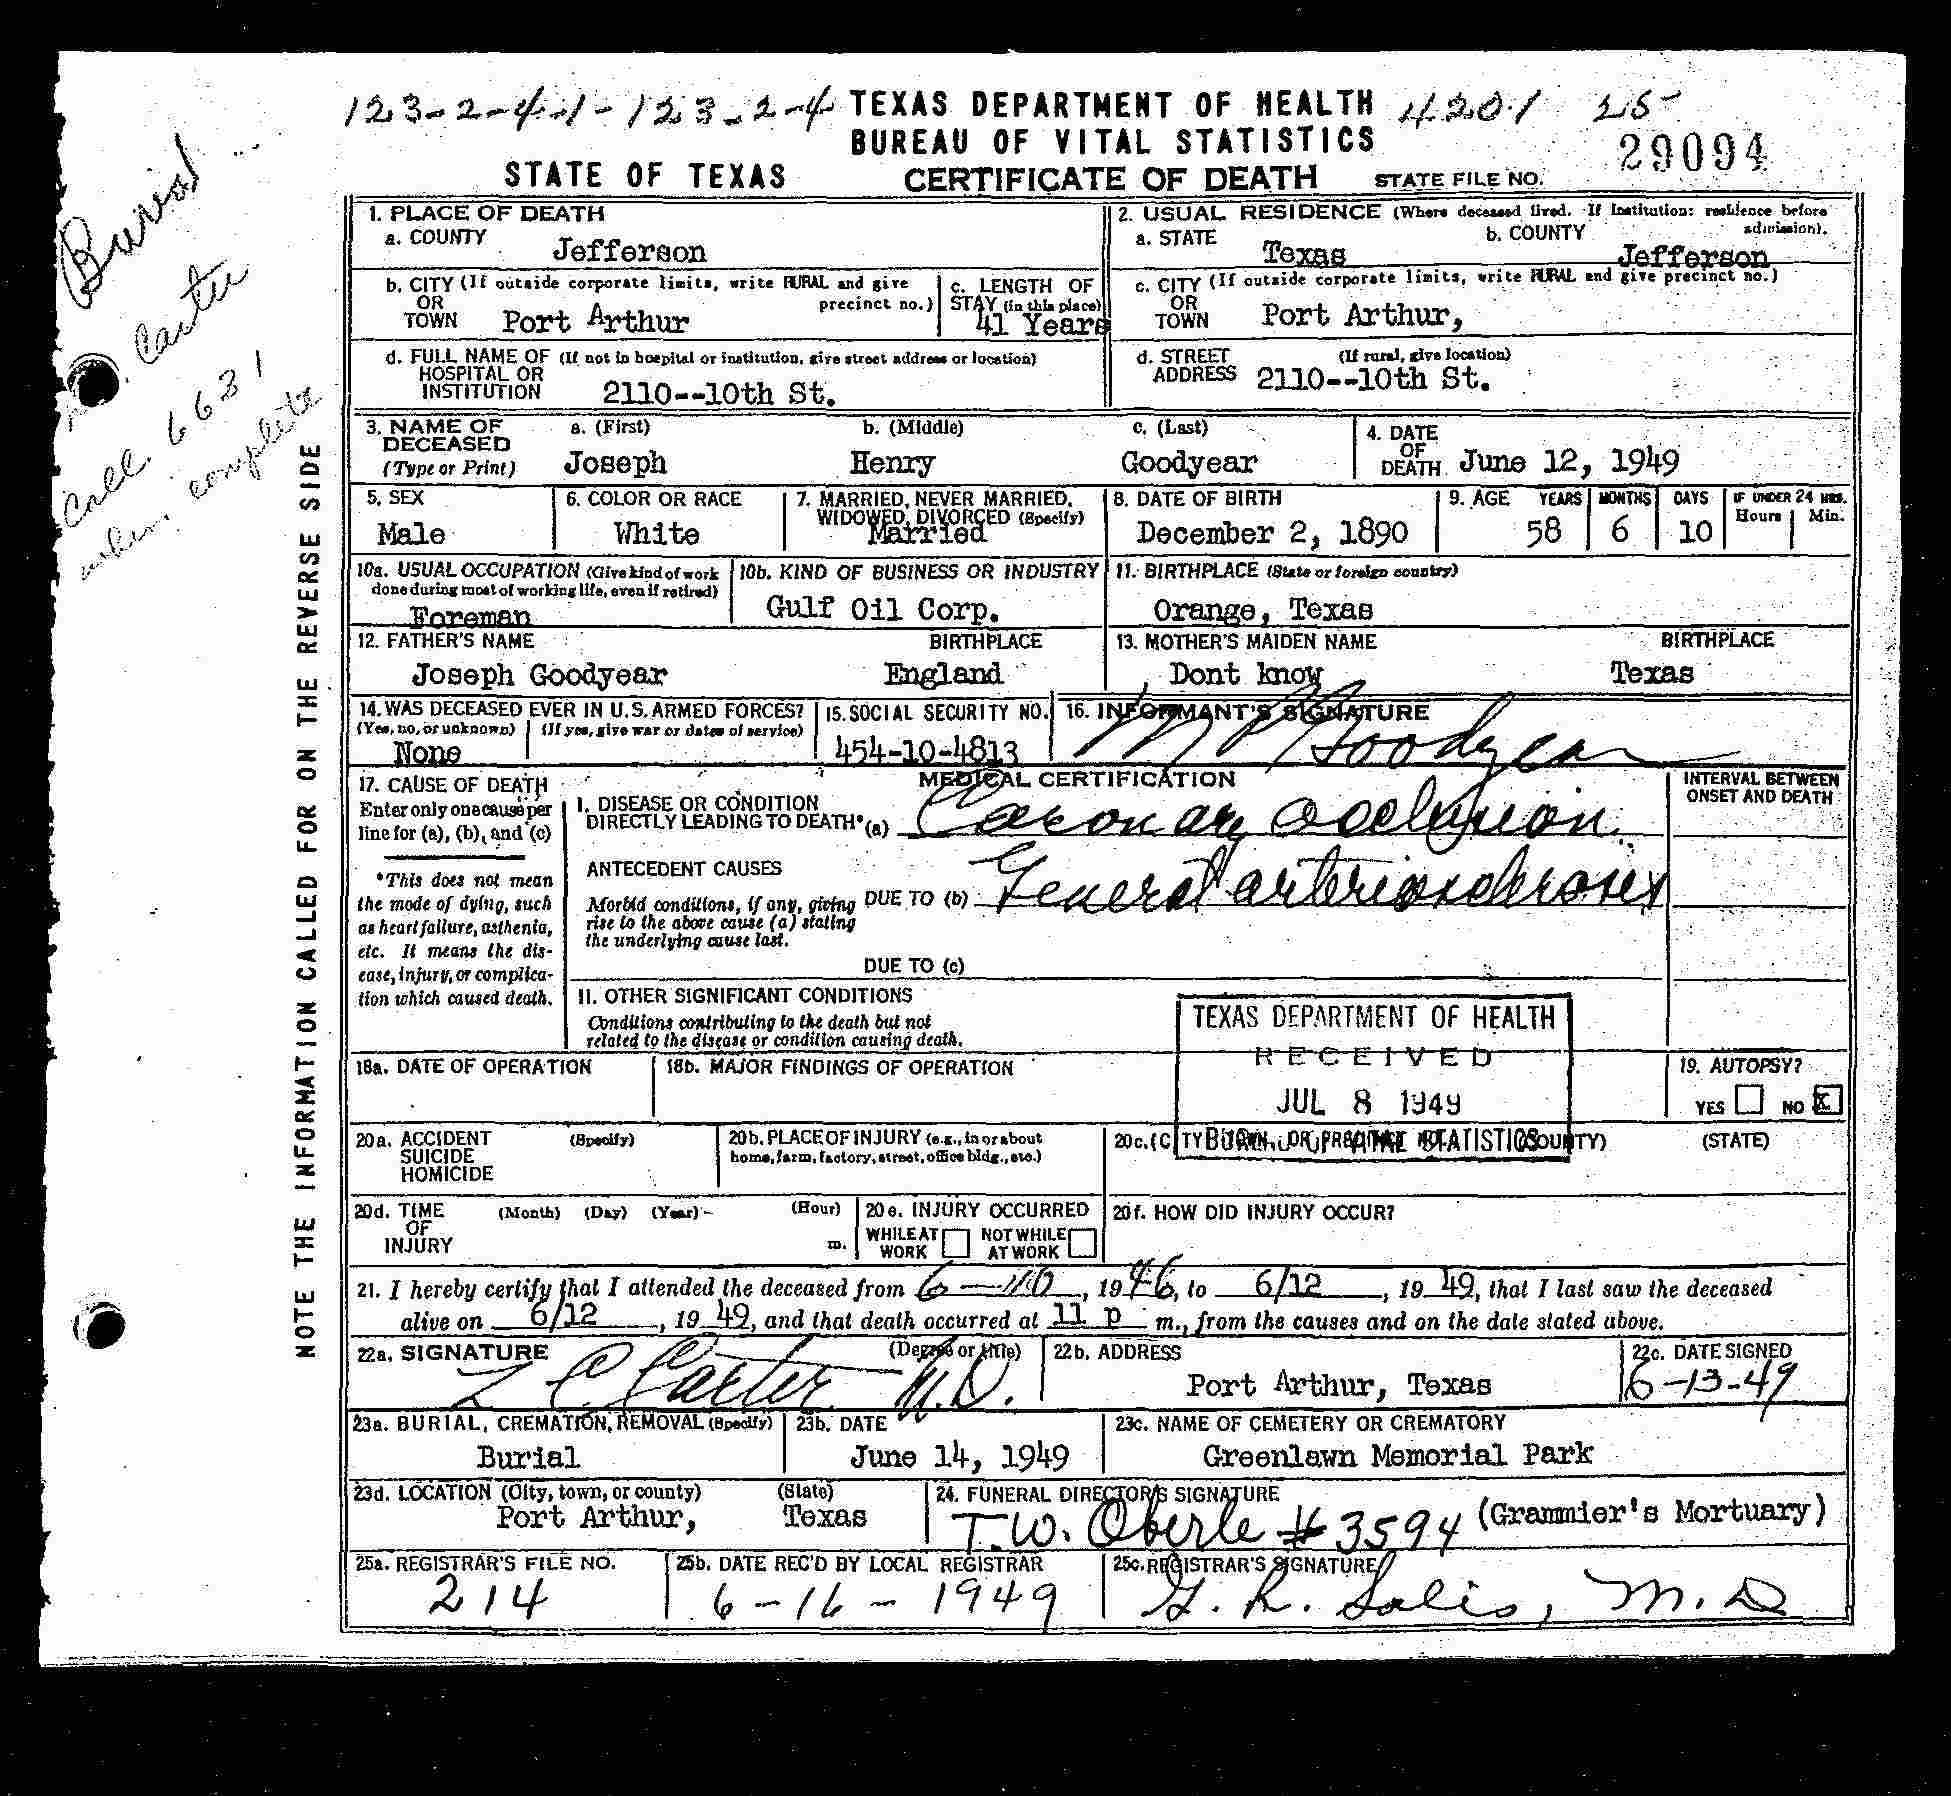 123-2-4-1-123-2-4 TEXAS DEPARTMENT OF HEALTH 4201 25
BUREAU OF VITAL STATISTICS 29094
STATE OF TEXAS CERTIFICATE OF DEATH STATE FILE NO.
Burial
Carter
Call. 6631
when complete
NOTE THE INFORMATION CALLED FOR ON THE REVERSE SIDE
1. PLACE OF DEATH
a. COUNTY Jefferson
2. USUAL RESIDENCE (Where deceased lived. If institution: residence before admission).
a. STATE Texas b. COUNTY Jefferson
b. CITY (If outside corporate limits, write RURAL and give precinct no.)
OR
TOWN Port Arthur
c. LENGTH OF
STAY (in this place)
41 Years
c. CITY (If outside corporate limits, write RURAL and give precinct no.)
OR
TOWN Port Arthur,
d. FULL NAME OF (If not in hospital or institution, give street address or location)
HOSPITAL OR
INSTITUTION 2110--10th St.
d. STREET (If rural, give location)
ADDRESS 2110--10th St.
3. NAME OF DECEASED (Type or Print)
a. (First) Joseph
b. (Middle) Henry
c. (Last) Goodyear
4. DATE OF DEATH June 12, 1949
5. SEX Male
6. COLOR OR RACE White
7. MARRIED, NEVER MARRIED, WIDOWED, DIVORCED (Specify) Married
8. DATE OF BIRTH December 2, 1890
9. AGE YEARS 58 MONTHS 6 DAYS 10 IF UNDER 24 HRS. Hours Min.
10a. USUAL OCCUPATION (Give kind of work done during most of working life, even if retired) Foreman
10b. KIND OF BUSINESS OR INDUSTRY Gulf Oil Corp.
11. BIRTHPLACE (State or foreign country) Orange, Texas
12. FATHER'S NAME Joseph Goodyear BIRTHPLACE England
13. MOTHER'S MAIDEN NAME Dont know BIRTHPLACE Texas
14. WAS DECEASED EVER IN U.S. ARMED FORCES?
(Yes, no, or unknown) (If yes, give war or dates of service)
None
15. SOCIAL SECURITY NO. 454-10-4813
16. INFORMANT'S SIGNATURE
Goodyear
17. CAUSE OF DEATH
Enter only one cause per
line for (a), (b), and (c)
*This does not mean
the mode of dying, such
as heart failure, asthenia,
etc. It means the dis-
ease, injury, or complica-
tion which caused death.
MEDICAL CERTIFICATION
INTERVAL BETWEEN
ONSET AND DEATH
I. DISEASE OR CONDITION
DIRECTLY LEADING TO DEATH* (a) Coronary occlusion
ANTECEDENT CAUSES
Morbid conditions, if any, giving
rise to the above cause (a) stating
the underlying cause last.
DUE TO (b) General arteriosclerosis
DUE TO (c)
II. OTHER SIGNIFICANT CONDITIONS
Conditions contributing to the death but not
related to the disease or condition causing death.
TEXAS DEPARTMENT OF HEALTH
RECEIVED
JUL 8 1949
BUREAU OF VITAL STATISTICS
18a. DATE OF OPERATION
18b. MAJOR FINDINGS OF OPERATION
19. AUTOPSY?
YES NO X
20a. ACCIDENT (Specify)
SUICIDE
HOMICIDE
20b. PLACE OF INJURY (e.g., in or about
home, farm, factory, street, office bldg., etc.)
20c. (CITY, TOWN, OR PRECINCT NO.) (COUNTY) (STATE)
20d. TIME OF INJURY (Month) (Day) (Year) (Hour) m.
20e. INJURY OCCURRED
WHILE AT WORK NOT WHILE AT WORK
20f. HOW DID INJURY OCCUR?
21. I hereby certify that I attended the deceased from 6-10, 1946, to 6/12, 1949, that I last saw the deceased
alive on 6/12, 1949, and that death occurred at 11 p m., from the causes and on the date stated above.
22a. SIGNATURE (Degree or title)
L C Carter M.D.
22b. ADDRESS Port Arthur, Texas
22c. DATE SIGNED 6-13-49
23a. BURIAL, CREMATION, REMOVAL (Specify) Burial
23b. DATE June 14, 1949
23c. NAME OF CEMETERY OR CREMATORY Greenlawn Memorial Park
23d. LOCATION (City, town, or county) (State)
Port Arthur, Texas
24. FUNERAL DIRECTOR'S SIGNATURE
T.W. Oberle #3594 (Grammier's Mortuary)
25a. REGISTRAR'S FILE NO. 214
25b. DATE REC'D BY LOCAL REGISTRAR 6-16-1949
25c. REGISTRAR'S SIGNATURE
M.D